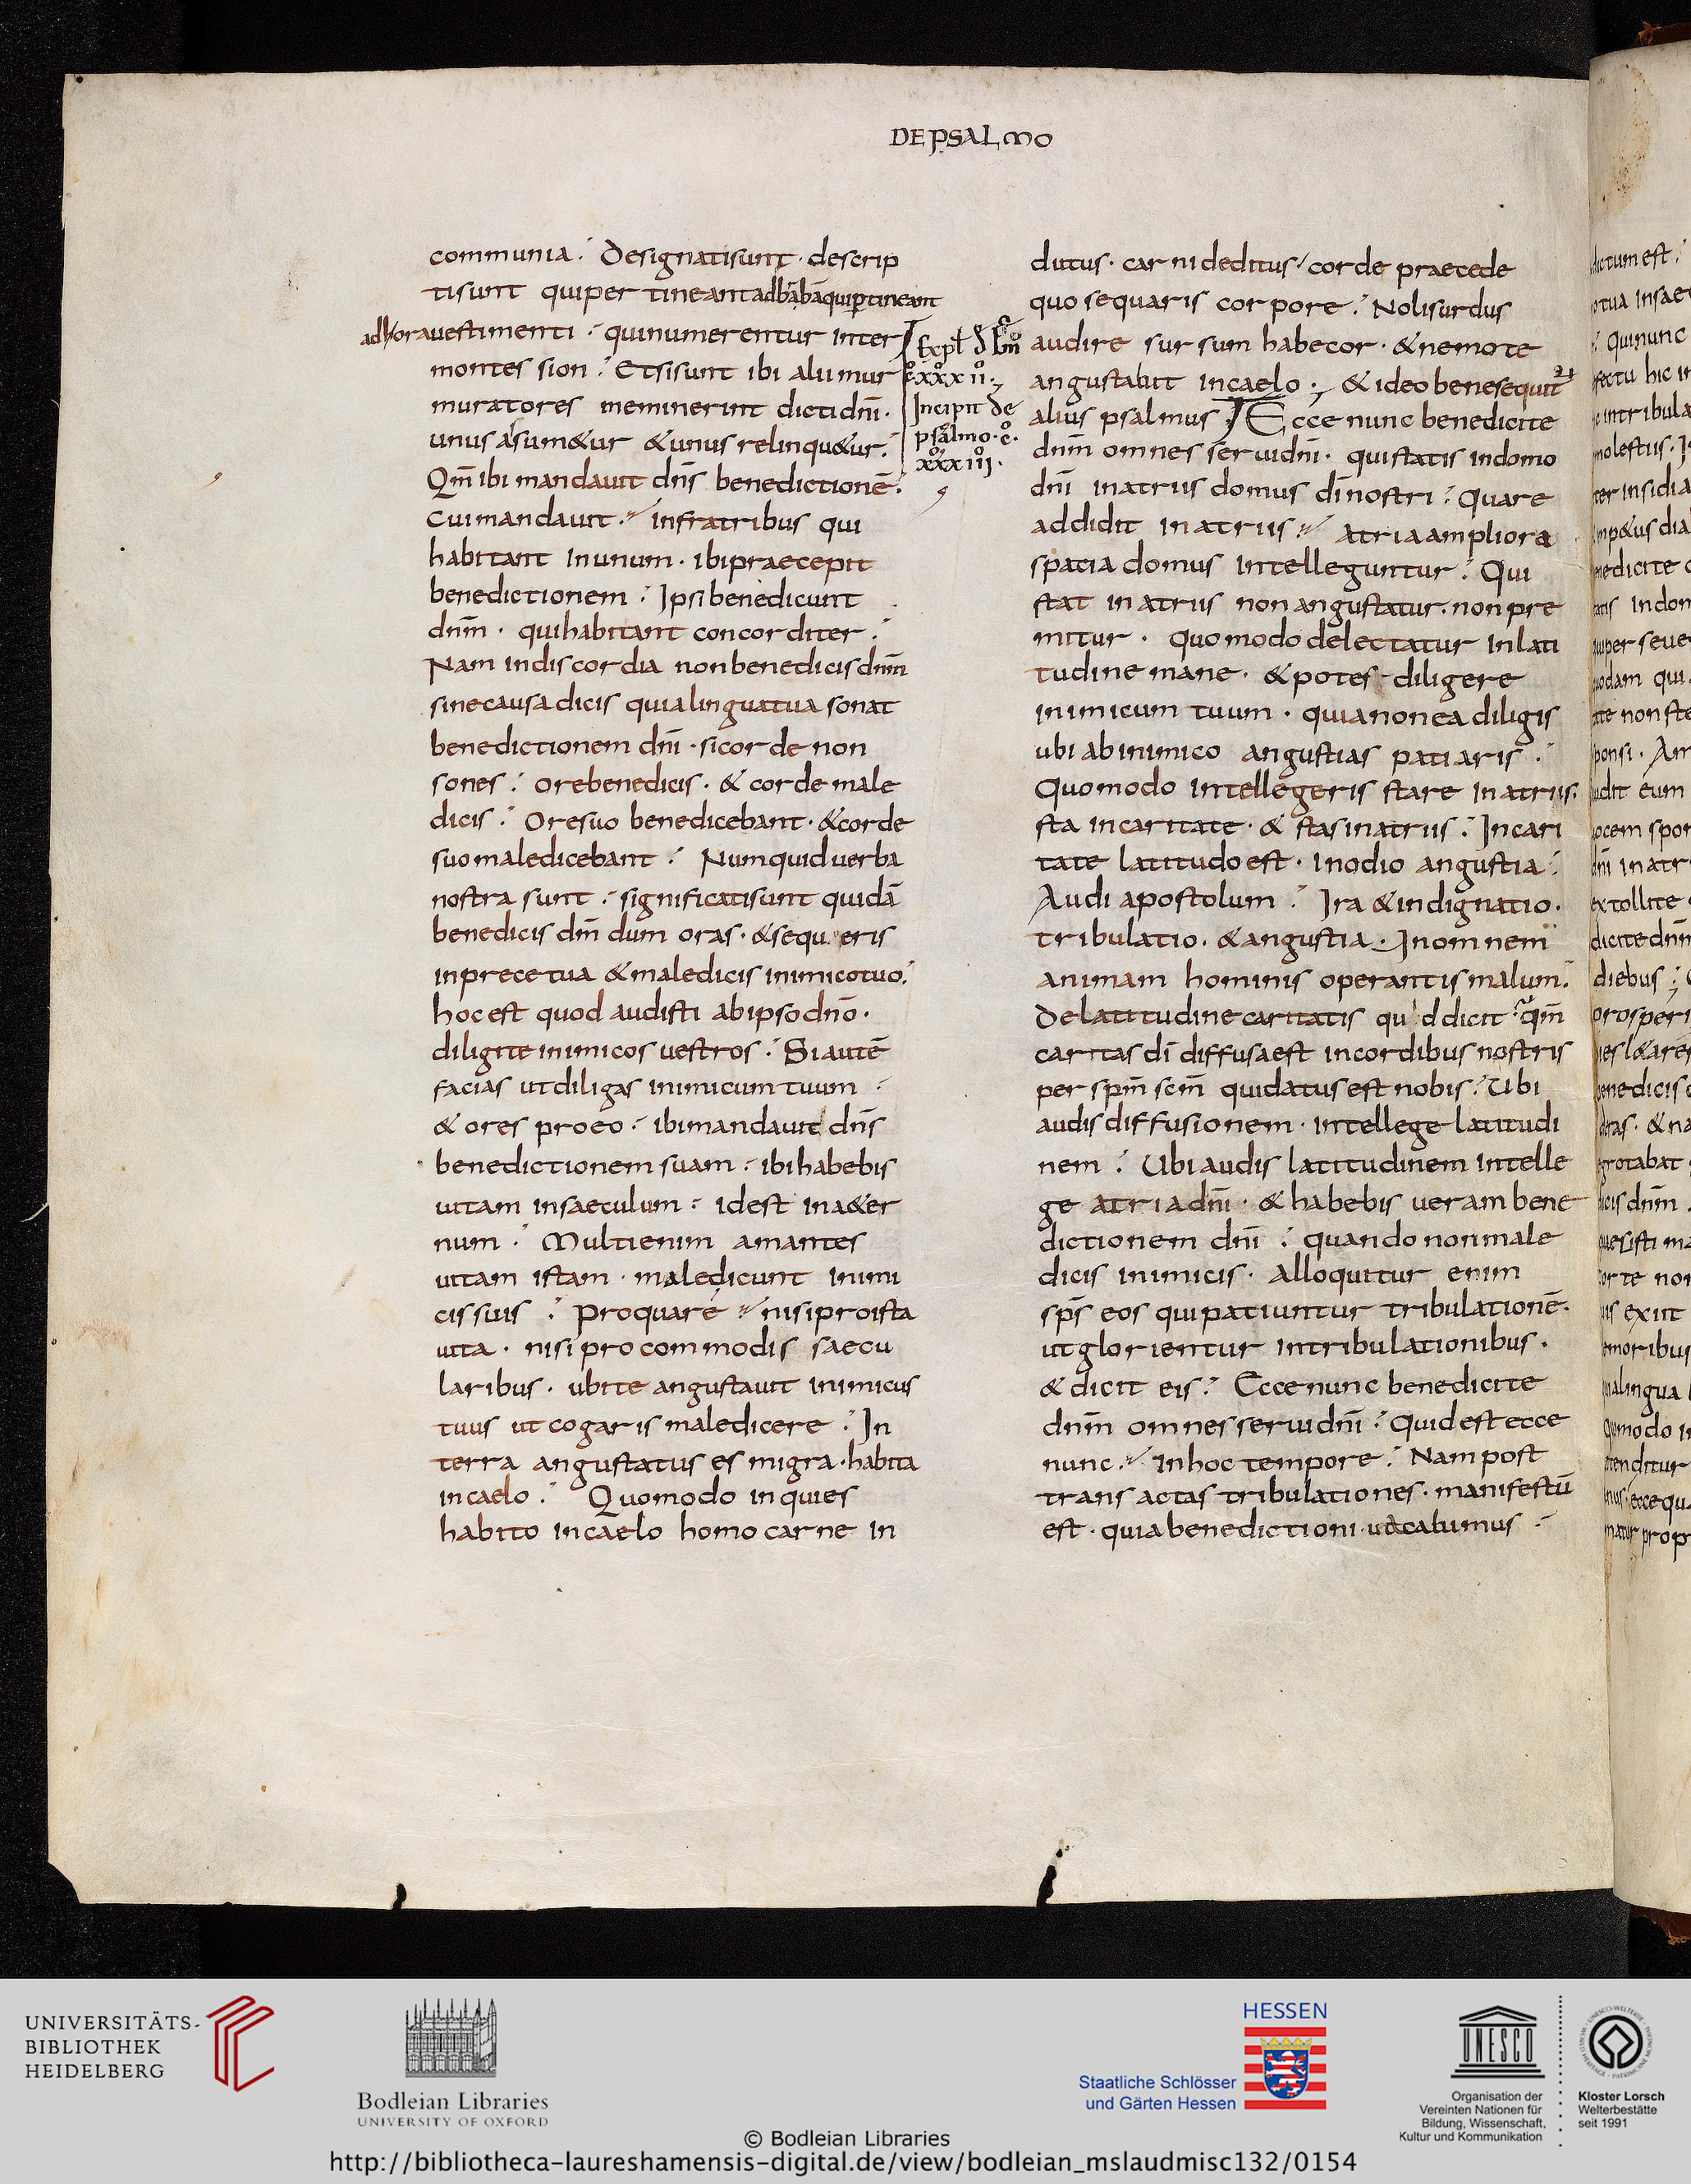 DE PSALMO
communia. Designati sunt. descrip
ti sunt qui pertineant ad bāqui ptineant
ad hora vestimenti. qui numerentur inter
montes sion. Et si sunt ibi alii mur
muratores meminerint dicti dnī.
unus asum&ur & unus relinqu&ur.
Qm̄ ibi mandavit dn̄s benedictionē.
Cui mandavit. in fratribus qui
habitant in unum. ibi praecepit
benedictionem. Ipsi benedicunt
dnm̄. qui habitant concorditer.
Nam in discordia non benedicis dnm̄
sine causa dicis quia lingua tua sonat
benedictionem dnī. si corde non
sones. Ore benedicis. & corde male
dicis. Ore suo benedicebant. & corde
suo maledicebant. Numquid verba
nostra sunt. significati sunt quidā
benedicis dm̄ dum oras. & sequeris
in prece tua & maledicis inimico tuo.
hoc est quod audisti ab ipso dnō.
diligite inimicos vestros. Si autē
facias ut diligas inimicum tuum
& ores pro eo. ibi mandavit dn̄s
benedictionem suam. ibi habebis
vitam in saeculum. id est in a&er
num. Multi enim amantes
vitam istam. maledicunt inimi
cis suis. Pro quare nisi pro ista
vita. nisi pro commodis saecu
laribus. ubi te angustavit inimicus
tuus ut cogaris maledicere. In
terra angustatus es migra. habita
in caelo. Quomodo inquies
habito in caelo homo carne in
Expl̄ d̄
c̊ xxx̊ ii̊.
Incipit de
psalmo. c̊.
xxx̊ iii̊.
dutus. carni deditus. corde praecede
quo sequaris corpore. Noli surdus
audire sursum habe cor. & nemo te
angustabit in caelo. & ideo bene sequit
alius psalmus. Ecce nunc benedicite
dnm̄ omnes servi dnī. qui statis in domo
dnī in atriis domus dī nostri. Quare
addidit in atriis. atria ampliora
spatia domus intelleguntur. Qui
stat in atriis non angustatur. non pre
mitur. Quomodo delectatur in lati
tudine mane. & potes diligere
inimicum tuum. quia non ea diligis
ubi ab inimico angustias patiaris.
Quomodo intellegeris stare in atriis.
sta in caritate. & stas in atriis. In cari
tate latitudo est. in odio angustia.
Audi apostolum. Ira & indignatio.
tribulatio. & angustia. In omnem
animam hominis operantis malum.
De latitudine caritatis quid dicit. qm̄
caritas dī diffusa est in cordibus nostris
per spm̄ scm̄ qui datus est nobis. Ubi
audis diffusionem. intellege latitudi
nem. Ubi audis latitudinem intelle
ge atria dnī. & habebis veram bene
dictionem dnī. quando non male
dicis inimicis. Alloquitur enim
sps̄ eos qui patiuntur tribulationē.
ut glorientur in tribulationibus.
& dicit eis. Ecce nunc benedicite
dnm̄ omnes servi dnī. Quid est ecce
nunc. In hoc tempore. Nam post
transactas tribulationes. manifestū
est. quia benedictioni vacabimus
UNIVERSITÄTS-
BIBLIOTHEK
HEIDELBERG
Bodleian Libraries
UNIVERSITY OF OXFORD
HESSEN
Staatliche Schlösser
und Gärten Hessen
UNESCO
Organisation der
Vereinten Nationen für
Bildung, Wissenschaft,
Kultur und Kommunikation
Kloster Lorsch
Welterbestätte
seit 1991
© Bodleian Libraries
http://bibliotheca-laureshamensis-digital.de/view/bodleian_mslaudmisc132/0154